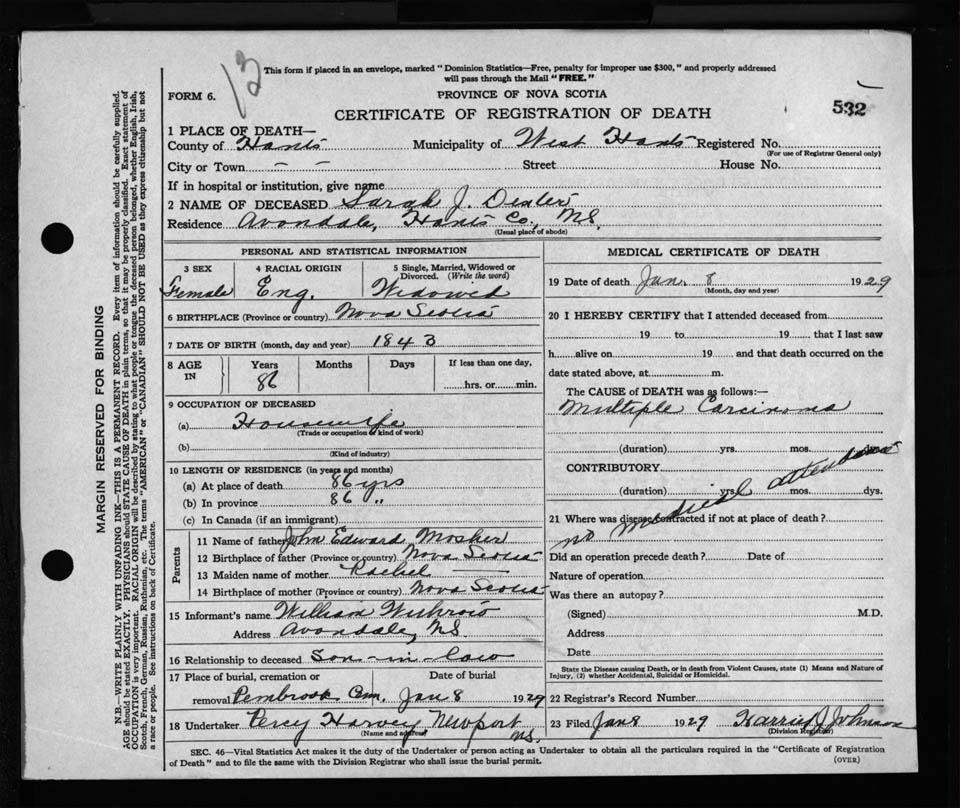 13
This form if placed in an envelope, marked "Dominion Statistics—Free, penalty for improper use $300," and properly addressed
will pass through the Mail "FREE."
FORM 6.
PROVINCE OF NOVA SCOTIA
CERTIFICATE OF REGISTRATION OF DEATH
532
1 PLACE OF DEATH—
County of Hants Municipality of West Hants Registered No.
(For use of Registrar General only)
City or Town — — Street House No.
If in hospital or institution, give name
2 NAME OF DECEASED Sarah J. Dexter
Residence Avondale, Hants Co., N.S.
(Usual place of abode)
MARGIN RESERVED FOR BINDING
N.B.—WRITE PLAINLY WITH UNFADING INK—THIS IS A PERMANENT RECORD. Every item of information should be carefully supplied.
AGE should be stated EXACTLY. PHYSICIANS should STATE CAUSE OF DEATH in plain terms, so that it may be properly classified. Exact statement of
OCCUPATION is very important. RACIAL ORIGIN will be described by stating to what people or tongue the deceased person belonged, whether English, Irish,
Scotch, French, German, Russian, Ruthenian, etc. The terms "AMERICAN" or "CANADIAN" SHOULD NOT BE USED as they express citizenship but not
a race or people. See instructions on back of Certificate.
PERSONAL AND STATISTICAL INFORMATION
3 SEX
Female
4 RACIAL ORIGIN
Eng.
5 Single, Married, Widowed or
Divorced. (Write the word)
Widowed
6 BIRTHPLACE (Province or country) Nova Scotia
7 DATE OF BIRTH (month, day and year) 1843
8 AGE
IN
Years
86
Months
Days
If less than one day,
hrs. or min.
9 OCCUPATION OF DECEASED
(a) Housewife
(Trade or occupation or kind of work)
(b)
(Kind of industry)
10 LENGTH OF RESIDENCE (in years and months)
(a) At place of death 86 yrs
(b) In province 86 "
(c) In Canada (if an immigrant)
Parents
11 Name of father John Edward Mosher
12 Birthplace of father (Province or country) Nova Scotia
13 Maiden name of mother Rachel —
14 Birthplace of mother (Province or country) Nova Scotia
15 Informant's name William
Address Avondale, N.S.
16 Relationship to deceased Son-in-law
17 Place of burial, cremation or
removal Pembrook Cem.
Date of burial
Jan 8 1929
18 Undertaker Percy Harvey Newport
(Name and address)
N.S.
MEDICAL CERTIFICATE OF DEATH
19 Date of death Jan. 8 1929
(Month, day and year)
20 I HEREBY CERTIFY that I attended deceased from
19 to 19 that I last saw
h alive on 19 and that death occurred on the
date stated above, at m.
The CAUSE of DEATH was as follows:—
Multiple Carcinoma
(duration) yrs. mos. ds.
CONTRIBUTORY
(duration) yrs. mos. dys.
no medical attendance
21 Where was disease contracted if not at place of death?
Did an operation precede death? Date of
Nature of operation
Was there an autopsy?
(Signed) M.D.
Address
Date
State the Disease causing Death, or in death from Violent Causes, state (1) Means and Nature of
Injury, (2) whether Accidental, Suicidal or Homicidal.
22 Registrar's Record Number
23 Filed Jan 8 1929 Harriet J. Johnson
(Division Registrar)
SEC. 46—Vital Statistics Act makes it the duty of the Undertaker or person acting as Undertaker to obtain all the particulars required in the "Certificate of Registration
of Death" and to file the same with the Division Registrar who shall issue the burial permit.
(OVER)